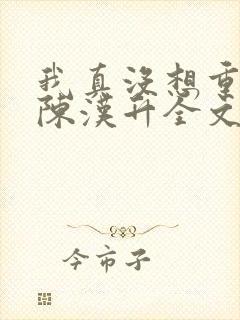 我真没想重
陈漢升全文
今市子